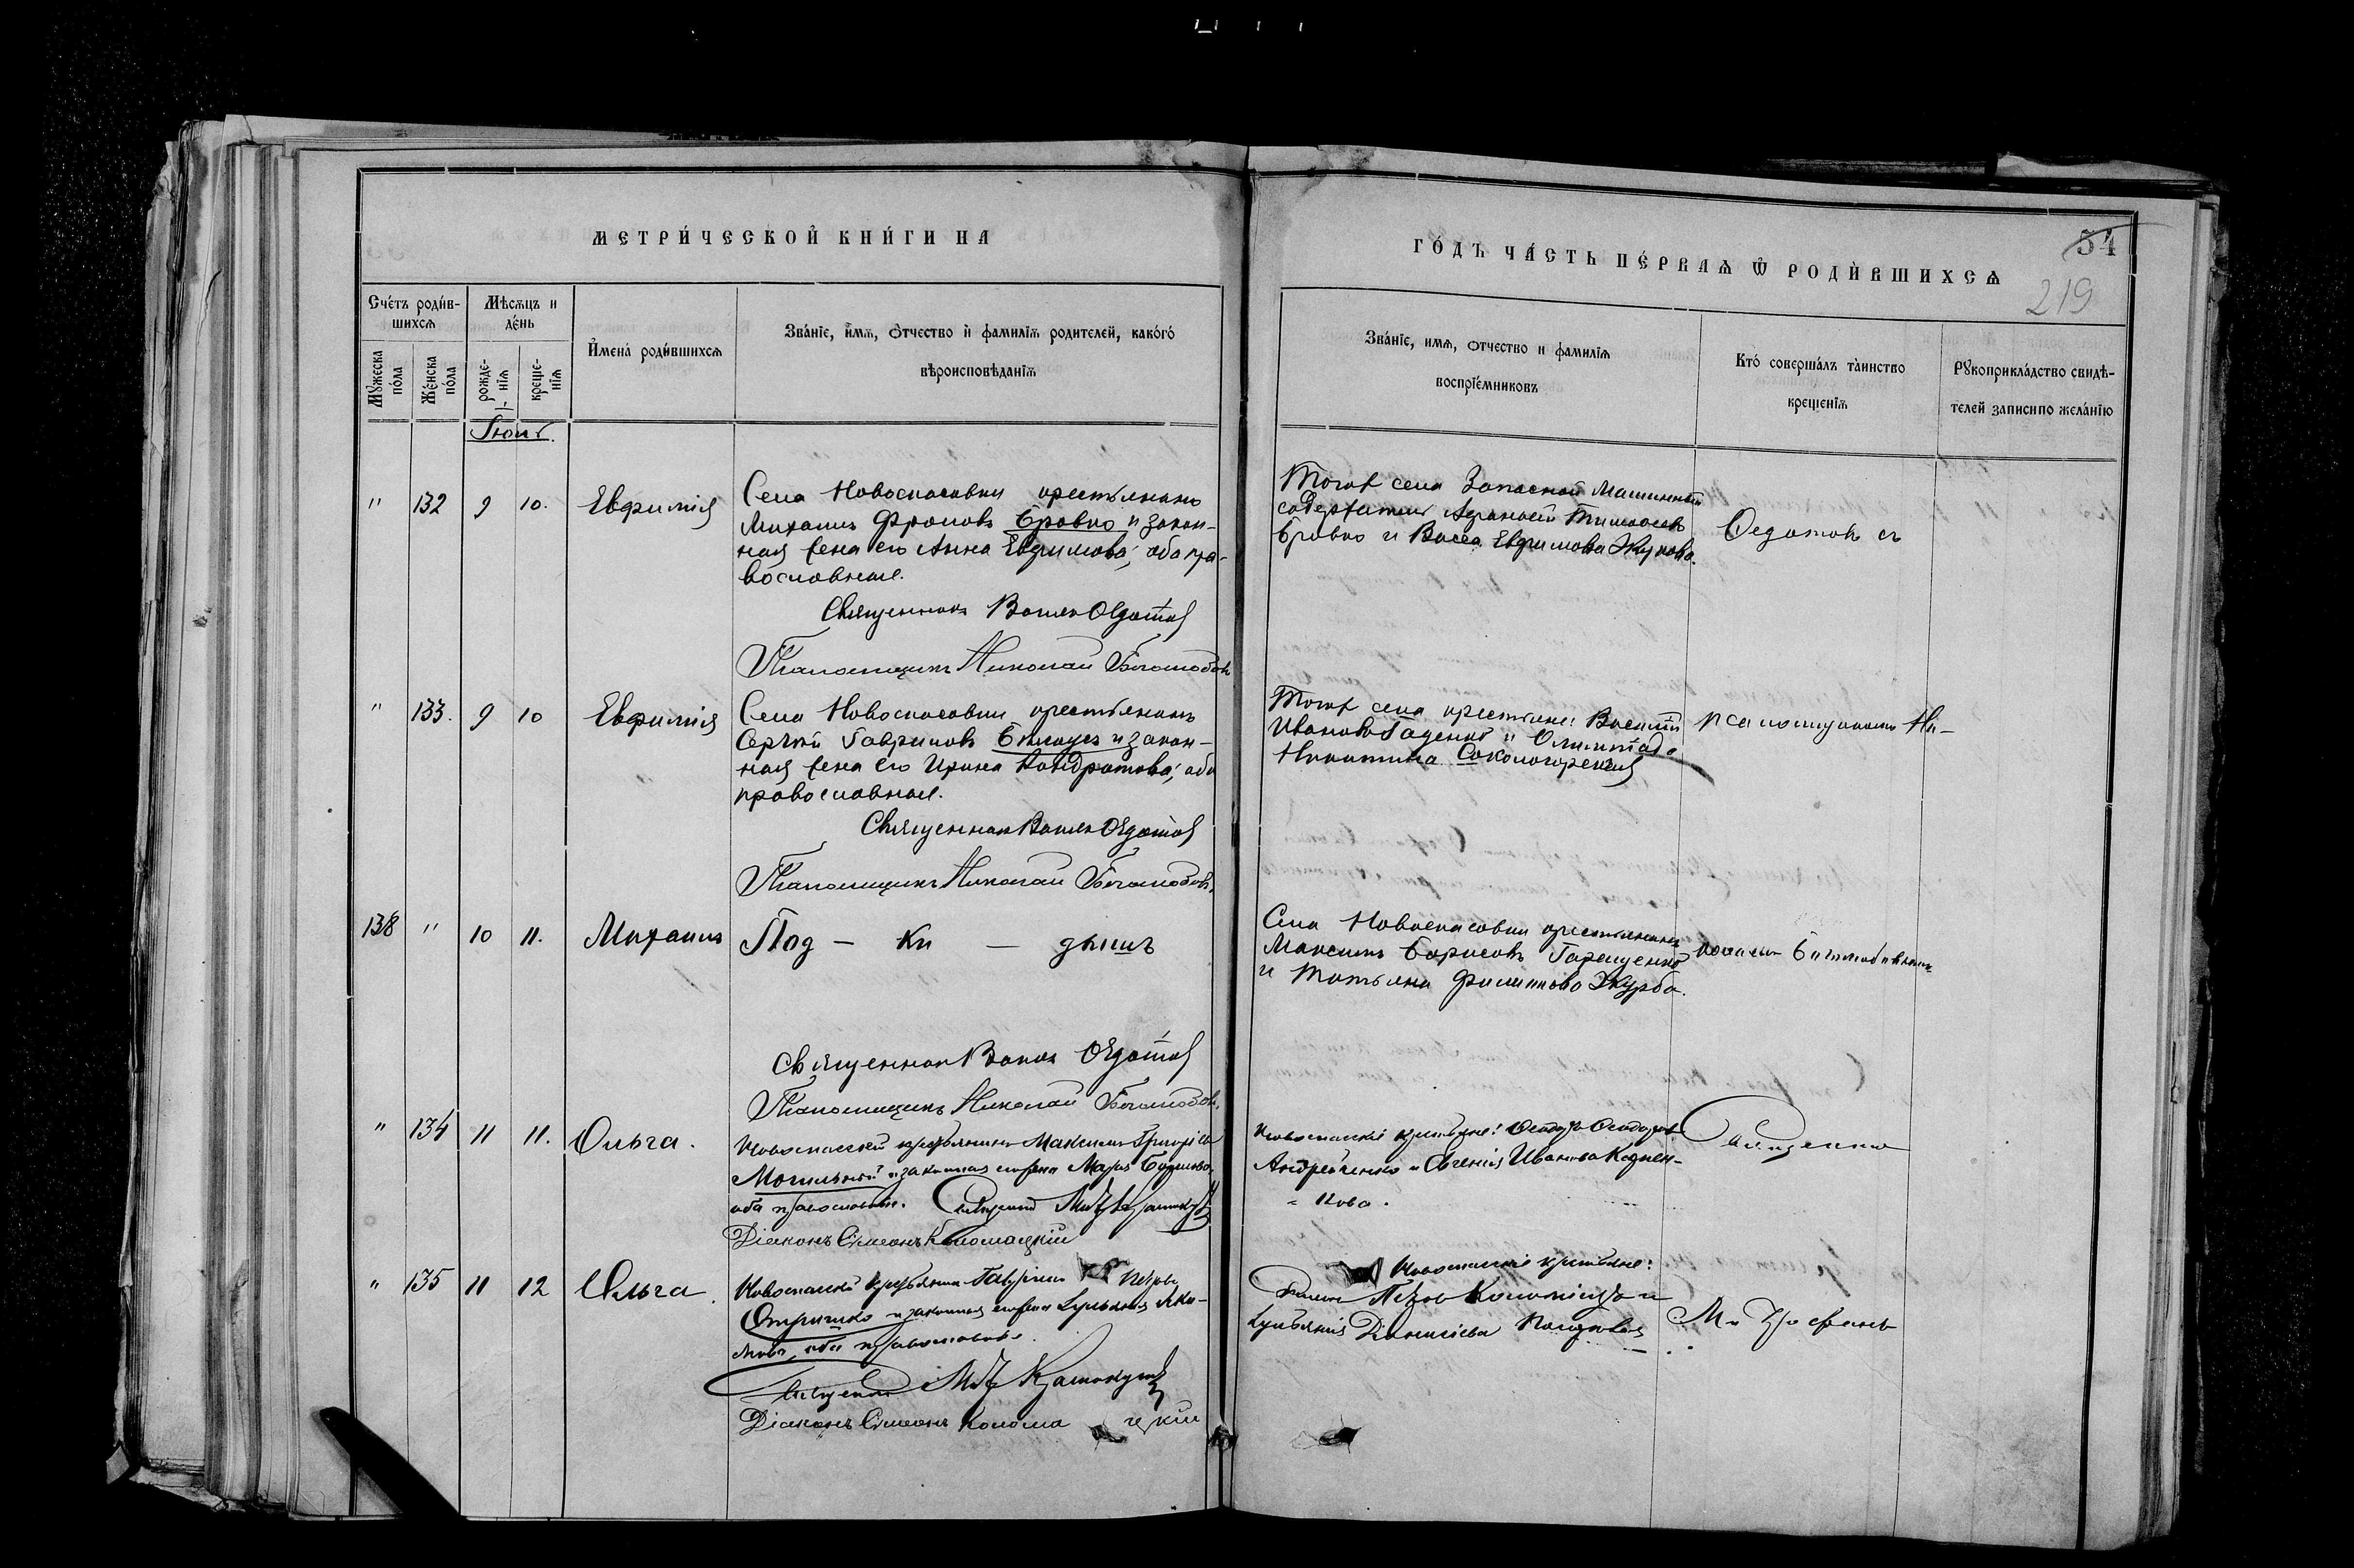 МЕТРИ́ЧЕСКОЙ КНИ́ГИ НА
ГО́ДЪ ЧА́СТЬ ПЕ́РВАѦ Ѿ РОДИ́ВШИХСѦ
54
219
Сче́тъ роди́в-
шихсѧ
Мѣсѧцъ и
де́нь
Мꙋжеска
по́ла
Же́нска
по́ла
рожде-
нїѧ
креще-
нїѧ
И҆мена̀ роди́вшихсѧ
Зва́нїе, и҆́мѧ, ѻтчество и҆ фамилїѧ родителей, како́гѡ
вѣроисповѣданїѧ
Зва́нїе, имѧ, ѻтчество и фамилїѧ
воспрїе́мниковъ
Кто́ соверша́лъ та̀инство
крещенїѧ
Рꙋкоприкла́дство свидѣ-
телей записи по жела́нїю
Іюнь.
" 132 9 10. Евфимія
Села Новоспасовки крестьянинъ
Михаилъ Фроловъ Бровко и закон-
ная жена его Анна Евфимова; оба пра-
вославные.
Священникъ Федотов
Псаломщикъ Николай Боголюбовъ
Того же села Запасной
Тимофеевъ
Бровко и Васса Евфимова Жукова.
Федотовъ съ
" 133. 9 10 Евфимія
Села Новоспасовки крестьянинъ
Сергѣй Гавриловъ Бѣлоусъ и закон-
ная жена его Ирина Кондратова; оба
православные.
Священник Федотов
Псаломщикъ Николай Боголюбовъ.
Того же села крестьяне: Василій
Ивановъ Гаденко и Олимпіада
Никитина Сокологорская
псаломщикомъ Ни-
138 " 10 11. Михаилъ
Под — ки — дышъ
Священник Федотов
Псаломщикъ Николай Боголюбовъ.
Села Новоспасовки крестьянинъ
Максимъ Борисовъ Геращенко
и Татьяна Филиппова Журба.
колаемъ Боголюбовымъ
" 134 11 11. Ольга.
Новоспасскій крестьянинъ Максимъ Григорьев
Могильный и законная жена Марія
оба православные. Священникъ
Діаконъ Симеонъ Коломацкій
Новоспасскіе крестьяне: Феодоръ Феодоров
Андрейченко и Евгенія Иванова
Священно
" 135 11 12 Ольга.
Новоспасскій крестьянин Гавріилъ Петров
Стрижко и законная жена Іульянія Яки-
мова, оба православные.
Священник
Діаконъ Симеонъ Колома цкій
Новоспасскіе крестьяне:
Петров Коломіецъ и
Іульянія Діонисіева